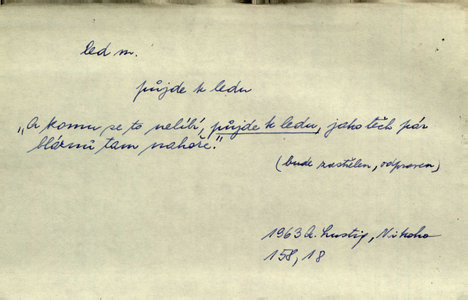 led m.
půjde k ledu
„A komu se to nelíbí, půjde k ledu, jako těch pár
bláznů tam nahoře."
(bude zastřelen, odpraven)
1963 A. Lustig, Nikoho
158, 18